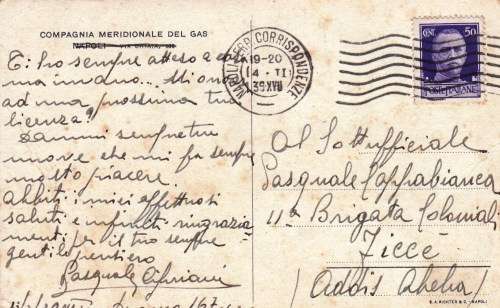 COMPAGNIA MERIDIONALE DEL GAS
NAPOLI - VIA CHIAIA, 138
Ti ho sempre atteso a
ma invano...
ad una prossima tua
licenza!
Dammi sempre tue
nuove che mi fa sempre
molto piacere.
Abbiti i miei affettuosi
saluti e infiniti ringrazia
menti per il tuo sempre
gentile pensiero
Pasquale Cipriani
NAPOLI FERR. CORRISPONDENZE
19-20
14 · II
39 XVII
CENT. 50
POSTE ITALIANE
Al Sottufficiale
Pasquale Pappabianca
11ª Brigata Coloniali
Ficcè
(Addis Abeba)
E. A. RICHTER & C. - NAPOLI